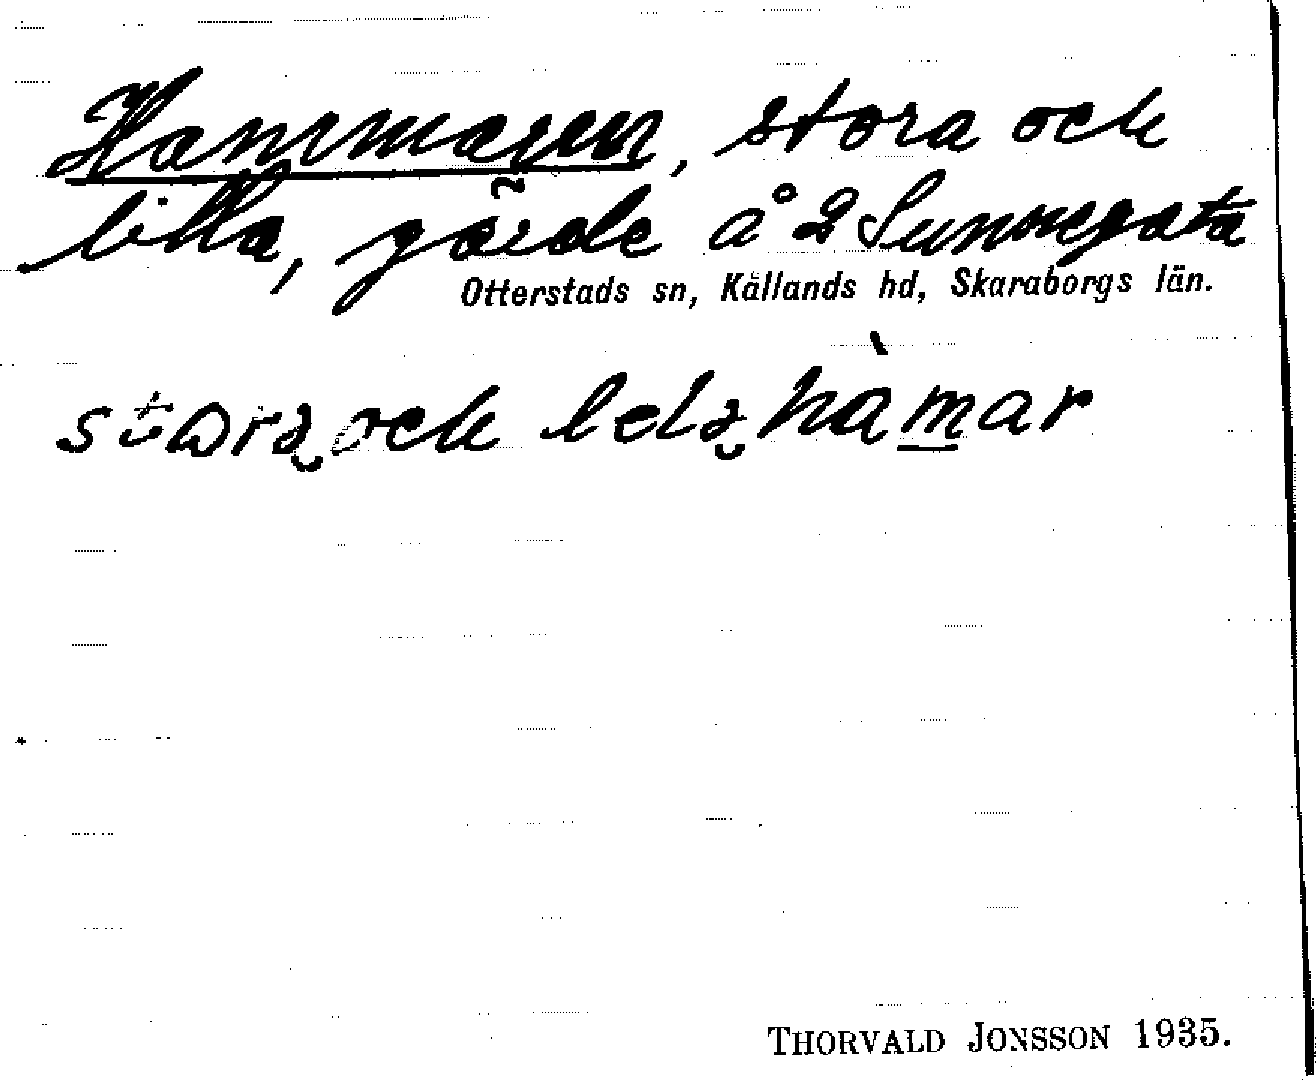 Hammaren, stora och
lilla, gärde å 2 Sunnregata
Otterstads sn, Kållands hd, Skaraborgs län.
stωra och lela hàmar
THORVALD JONSSON 1935.